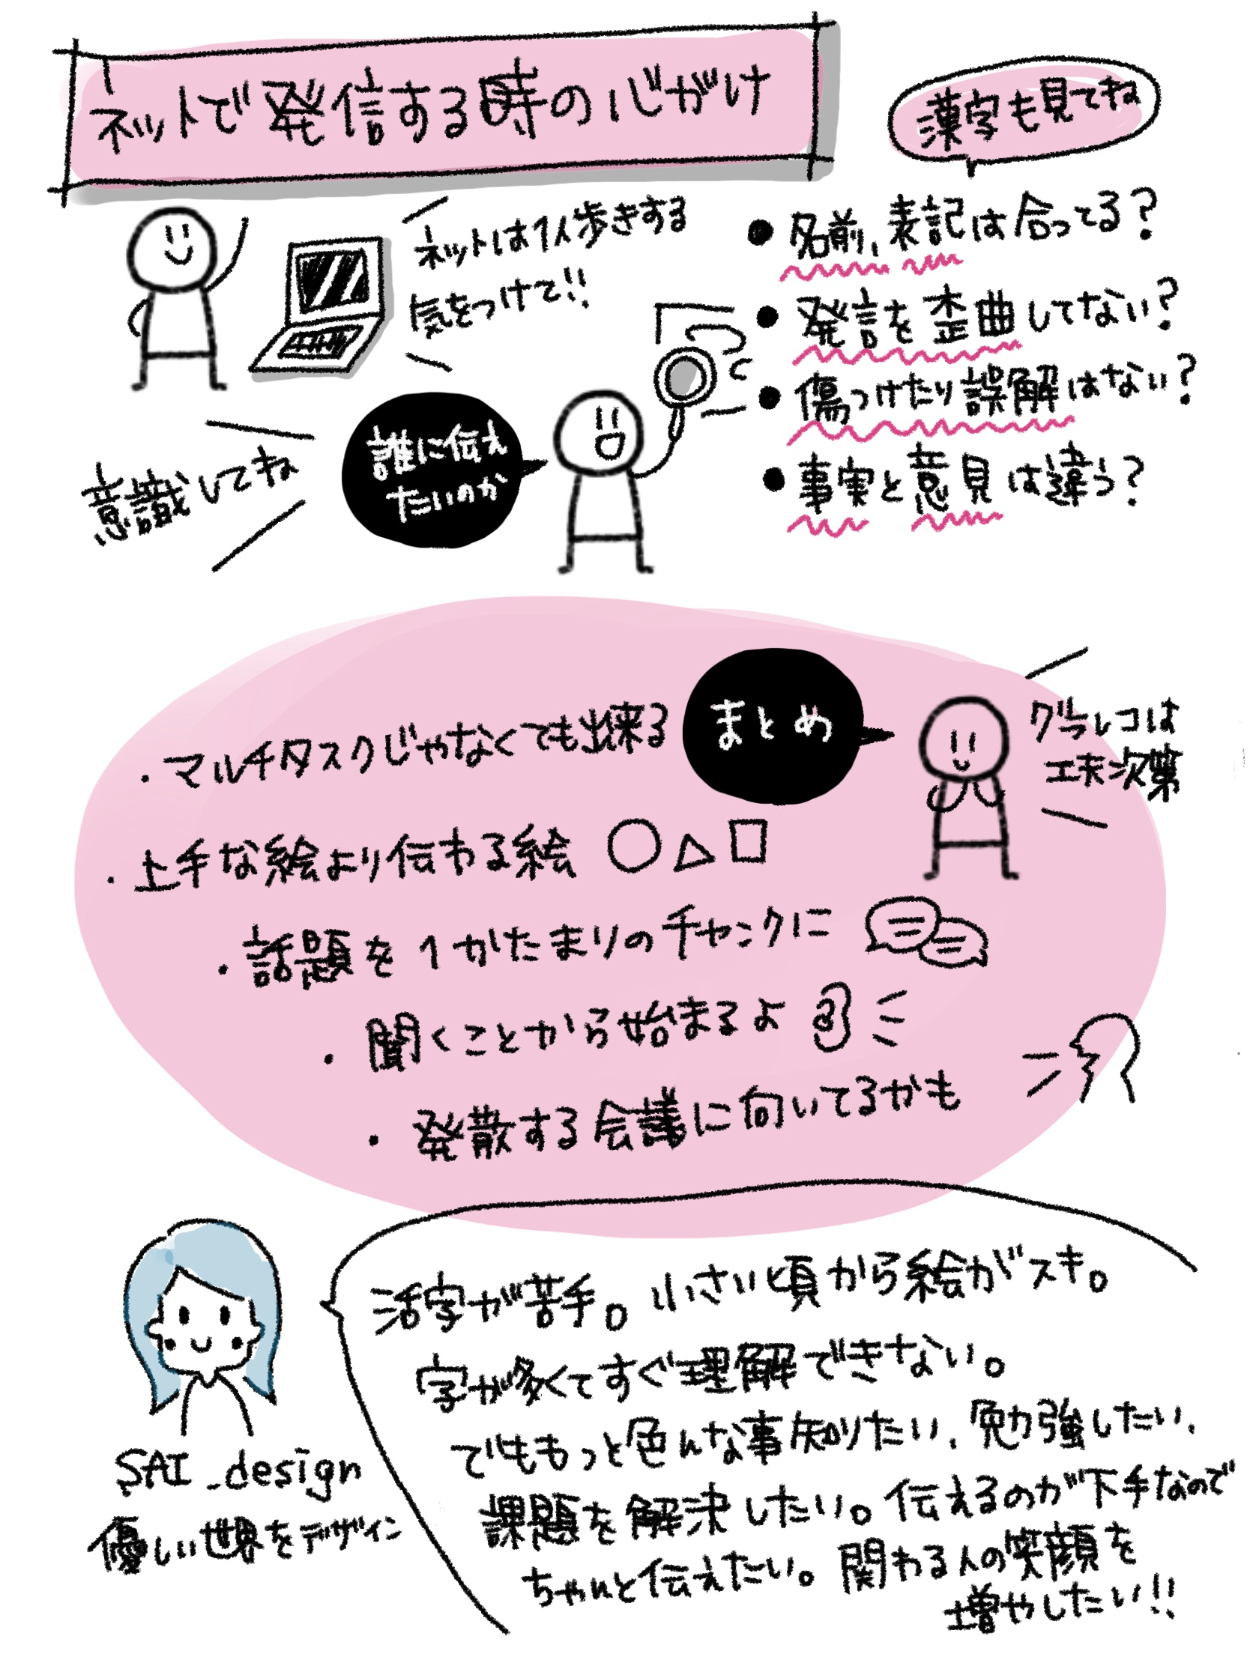 ネットで発信する時の心がけ
漢字も見てね
ネットは1人歩きする
気をつけて!!
・名前、表記は合ってる?
・発言を歪曲してない?
・傷つけたり誤解はない?
・事実と意見は違う?
意識してね
誰に伝え
たいのか
まとめ
グラレコは
工夫次第
・マルチタスクじゃなくても出来る
・上手な絵より伝わる絵 ○△□
・話題を1かたまりのチャンクに
・聞くことから始まるよ
・発散する会議に向いてるかも
活字が苦手。小さい頃から絵がスキ。
字が多くてすぐ理解できない。
でももっと色んな事知りたい、勉強したい、
課題を解決したい。伝えるのが下手なので
ちゃんと伝えたい。関わる人の笑顔を
増やしたい!!
SAI_design
優しい世界をデザイン